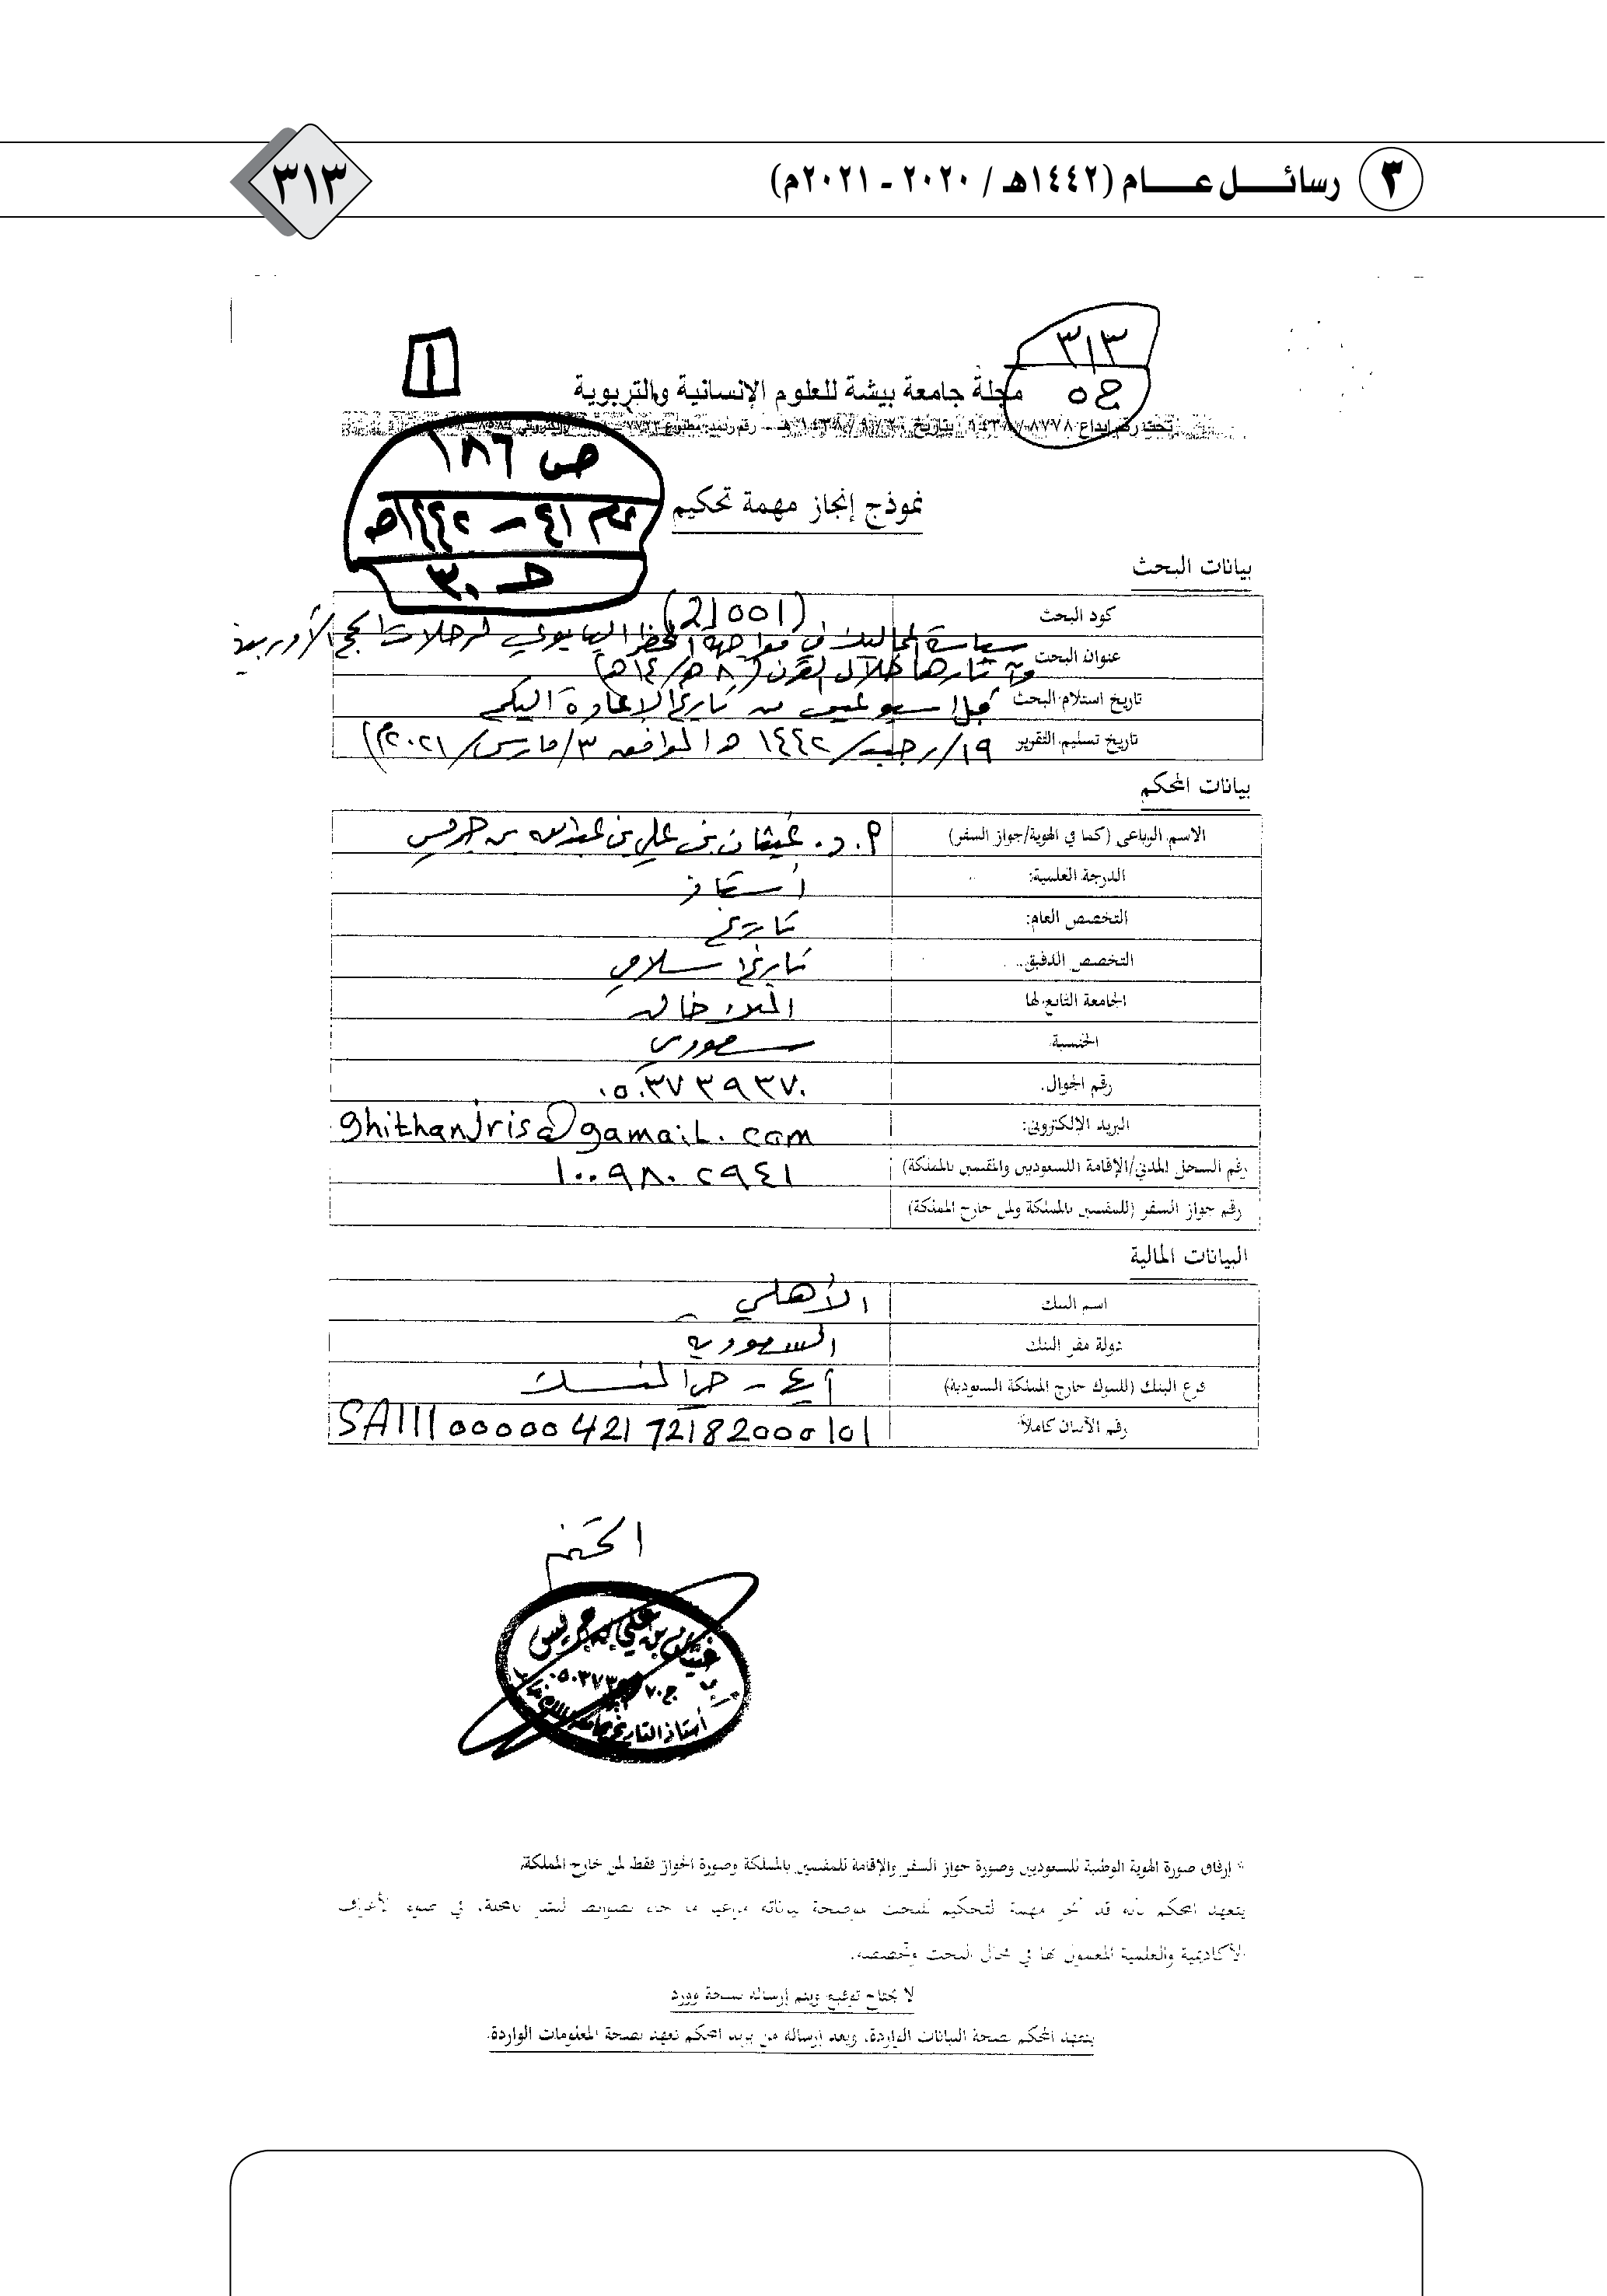 ٣ رسائــــل عـــــام (١٤٤٢هـ / ٢٠٢٠ - ٢٠٢١م)
٣١٣
٣١٣
ج٥
١
مجلة جامعة بيشة للعلوم الإنسانية والتربوية
تحت رقم إيداع ١٤٣٨/٠٨٧٧٨ بتاريخ
ص ١٨٦
عام ٤١ – ١٤٤٢هـ
حـ ٣٠
نموذج إنجاز مهمة تحكيم
بيانات البحث
كود البحث (21001)
عنوان البحث سياسة المماليك في مواجهة الحظر البابوي لرحلات الحج الأوربية
وآثارها خلال القرن (٨هـ/١٤هـ)
تاريخ استلام البحث قبل اسبوعين من تاريخ الإعادة اليكم
تاريخ تسليم التقرير ١٩/رجب/١٤٤٢هـ الموافق ٣/مارس/٢٠٢١م)
بيانات المحكم
الاسم الرباعي (كما في الهوية/جواز السفر) أ.د. غيثان بن علي بن عبدالله بن جريس
الدرجة العلمية: أستاذ
التخصص العام: تاريخ
التخصص الدقيق.. تاريخ اسلامي
الجامعة التابع لها الملك خالد
الجنسية سعودي
رقم الجوال. ٠٥٠٣٧٣٩٣٧٠
البريد الإلكتروني: ghithanjris@gamail.com
رقم السجل المدني/الإقامة (للسعوديين والمقيمين بالمملكة) ١٠٠٩٨٠٢٩٤١
رقم جواز السفر (للمقيمين بالمملكة ولمن خارج المملكة)
البيانات المالية
اسم البنك الأهلي
دولة مقر البنك السعودية
فرع البنك (للبنوك خارج المملكة السعودية) أبها -
رقم الآيبان كاملاً SA1110000042172182000101
الختم
غيثان بن علي بن جريس
ج ٠٥٠٣٧٣٩٣٧٠
أستاذ التاريخ بجامعة الملك خالد
* إرفاق صورة الهوية الوطنية للسعوديين وصورة جواز السفر والإقامة للمقيمين بالمملكة وصورة الجواز فقط لمن خارج المملكة.
يتعهد المحكم بأنه قد أنجز مهمة التحكيم للبحث الموضحة بياناته مراعيا ما جاء بضوابط النشر بالمجلة، في ضوء الأعراف
الأكاديمية والعلمية المعمول بها في مجال البحث وتخصصه.
لا يحتاج توقيع ويتم إرساله نسخة وورد
يتعهد المحكم بصحة البيانات الواردة، ويعد إرساله من بريد المحكم تعهد بصحة المعلومات الواردة.